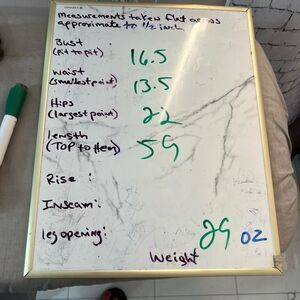 measurements taken flat across
approximate to 1/2 inch
Bust :
(Pit to Pit) 16.5
waist
(smallest point) 13.5
Hips :
(largest point) 22
length
(TOP to Hem) 59
Rise :
Inseam:
leg opening:
29 oz
Weight